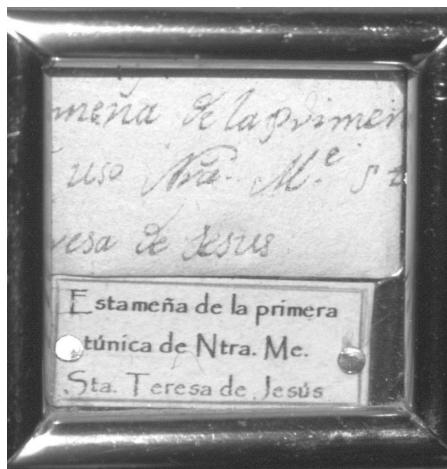 meña de la primer
uso Nra. M.e St
resa de Jesus
Estameña de la primera
túnica de Ntra. Me.
Sta. Teresa de Jesús